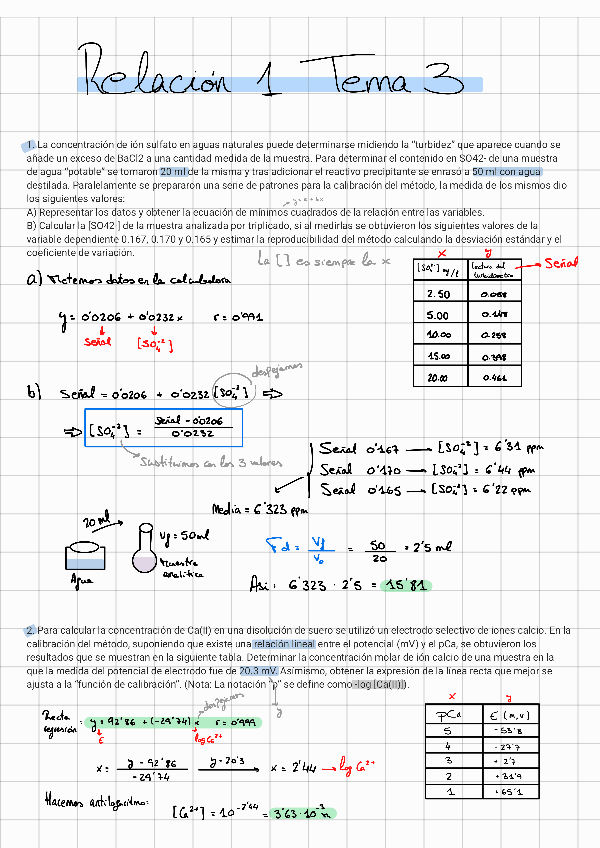 Relación 1 Tema 3
1. La concentración de ión sulfato en aguas naturales puede determinarse midiendo la "turbidez" que aparece cuando se
añade un exceso de BaCl2 a una cantidad medida de la muestra. Para determinar el contenido en SO42- de una muestra
de agua "potable" se tomaron 20 ml de la misma y tras adicionar el reactivo precipitante se enrasó a 50 ml con agua
destilada. Paralelamente se prepararon una serie de patrones para la calibración del método, la medida de los mismos dio
los siguientes valores:
y = a + bx
A) Representar los datos y obtener la ecuación de mínimos cuadrados de la relación entre las variables.
B) Calcular la [SO42-] de la muestra analizada por triplicado, si al medirlas se obtuvieron los siguientes valores de la
variable dependiente 0.167, 0.170 y 0.165 y estimar la reproducibilidad del método calculando la desviación estándar y el
coeficiente de variación.
La [ ] es siempre la x
x y
[SO4²⁻] mg/l Lectura del turbidímetro → Señal
2.50 0.068
5.00 0.148
10.00 0.258
15.00 0.398
20.00 0.461
a) Metemos datos en la calculadora
y = 0'0206 + 0'0232 x r = 0'991
Señal [SO4⁻²]
despejamos
b) Señal = 0'0206 + 0'0232 [SO4⁻²] ⇒
⇒ [SO4⁻²] = (Señal - 0'0206) / 0'0232
Sustituimos con los 3 valores
Señal 0'167 → [SO4⁻²] = 6'31 ppm
Señal 0'170 → [SO4⁻²] = 6'44 ppm
Señal 0'165 → [SO4⁻²] = 6'22 ppm
Media = 6'323 ppm
20 ml
Vf = 50 ml
Agua
Muestra analítica
Fd = Vf / Vo = 50 / 20 = 2'5 ml
Así: 6'323 · 2'5 = 15'81
2. Para calcular la concentración de Ca(II) en una disolución de suero se utilizó un electrodo selectivo de iones calcio. En la
calibración del método, suponiendo que existe una relación lineal entre el potencial (mV) y el pCa, se obtuvieron los
resultados que se muestran en la siguiente tabla. Determinar la concentración molar de ión calcio de una muestra en la
que la medida del potencial de electrodo fue de 20.3 mV. Asímismo, obtener la expresión de la línea recta que mejor se
ajusta a la "función de calibración". (Nota: La notación "p" se define como -log [Ca(II)]).
despejamos
y
x y
pCa E (m,v)
5 -53'8
4 -27'7
3 +2'7
2 +31'9
1 +65'1
Recta regresión: y = 92'86 + (-29'74) x r = 0'999
E log Ca²⁺
x = (y - 92'86) / -29'74 y = 20'3 → x = 2'44 → log Ca²⁺
Hacemos antilogaritmo:
[Ca²⁺] = 10^-2'44 = 3'63·10⁻³ M